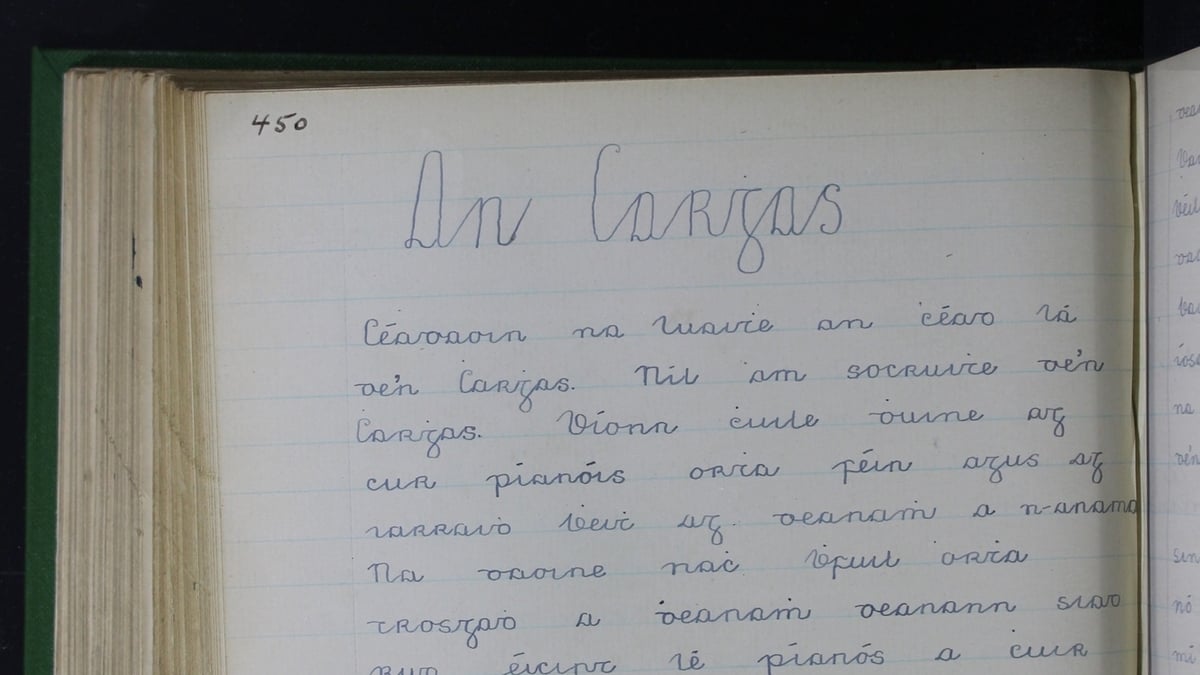 450
An Carġas
Céadaoin na luaiṫe an ċéad lá
de'n Carġas. Níl am socruiṫe de'n
Carġas. Bíonn ċuile ḋuine ag
cur píanóis orṫa féin agus ag
iarraiḋ ḃeiṫ ag deanaṁ a n-anama
Na daoine naċ ḃfuil orṫa
trosgaḋ a ḋeanaṁ deanann siad
rud éicint lé píanós a ċuir